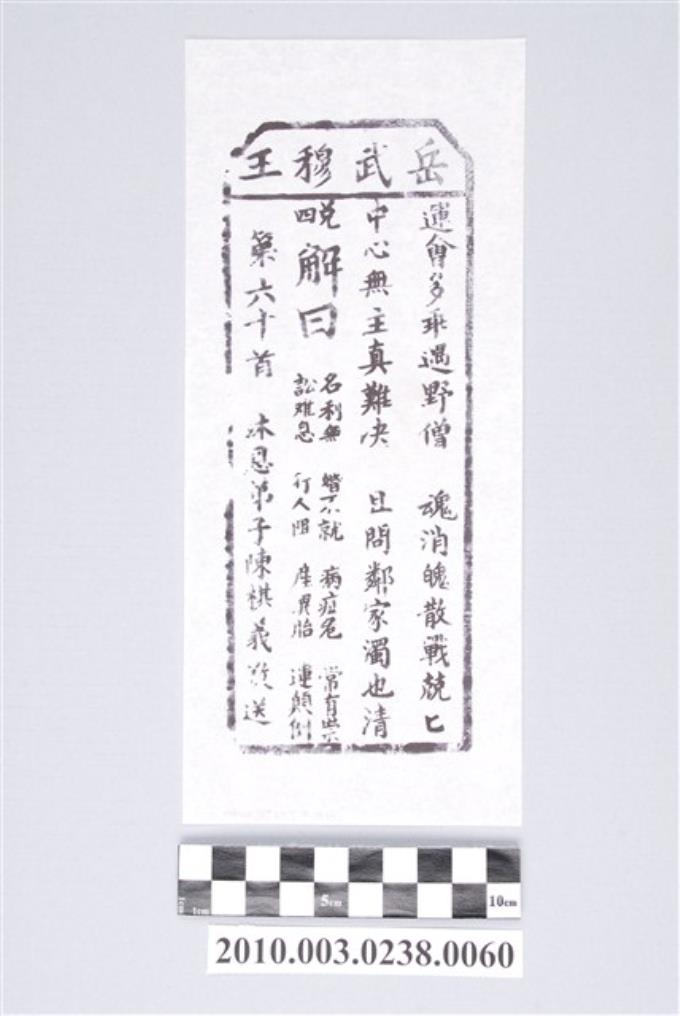 岳武穆王
運會多乖遇野僧　魂消魄散戰兢匕
中心無主真難决　且問鄰家濁也清
兑四　解曰　名利無　婚不就　病症危　常有祟
訟难息　行人阻　產異胎　運顛倒
第六十首　沐恩弟子陳棋義敬送
1cm 5cm 10cm
2010.003.0238.0060